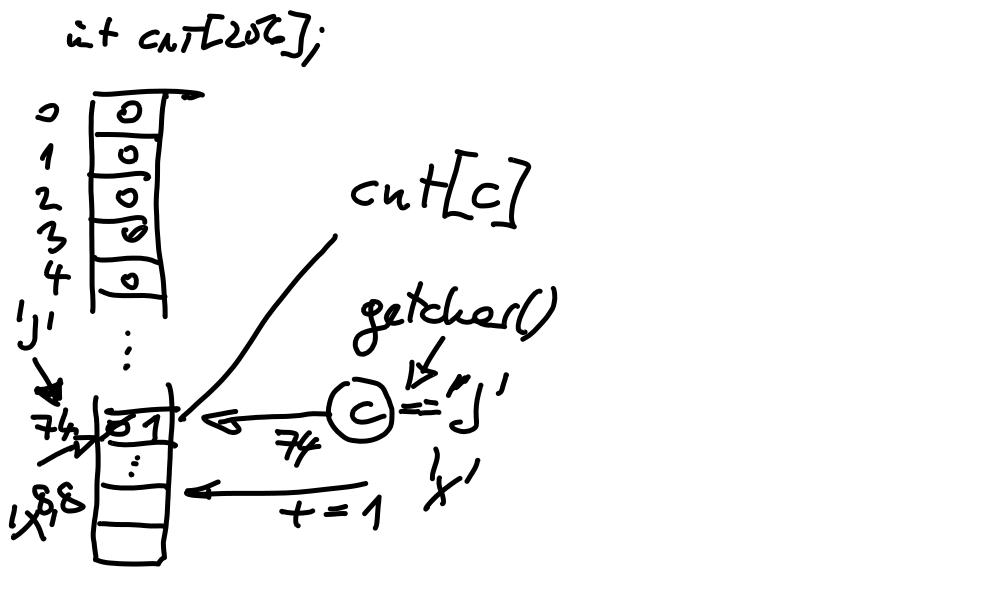 int cnt[256];
0 0
1 0
2 0
3 0
4 0
cnt[c]
'J'
getchar()
⋮
c == 'J'
74 0 1
74
⋮
'X'
'X' 88
+= 1